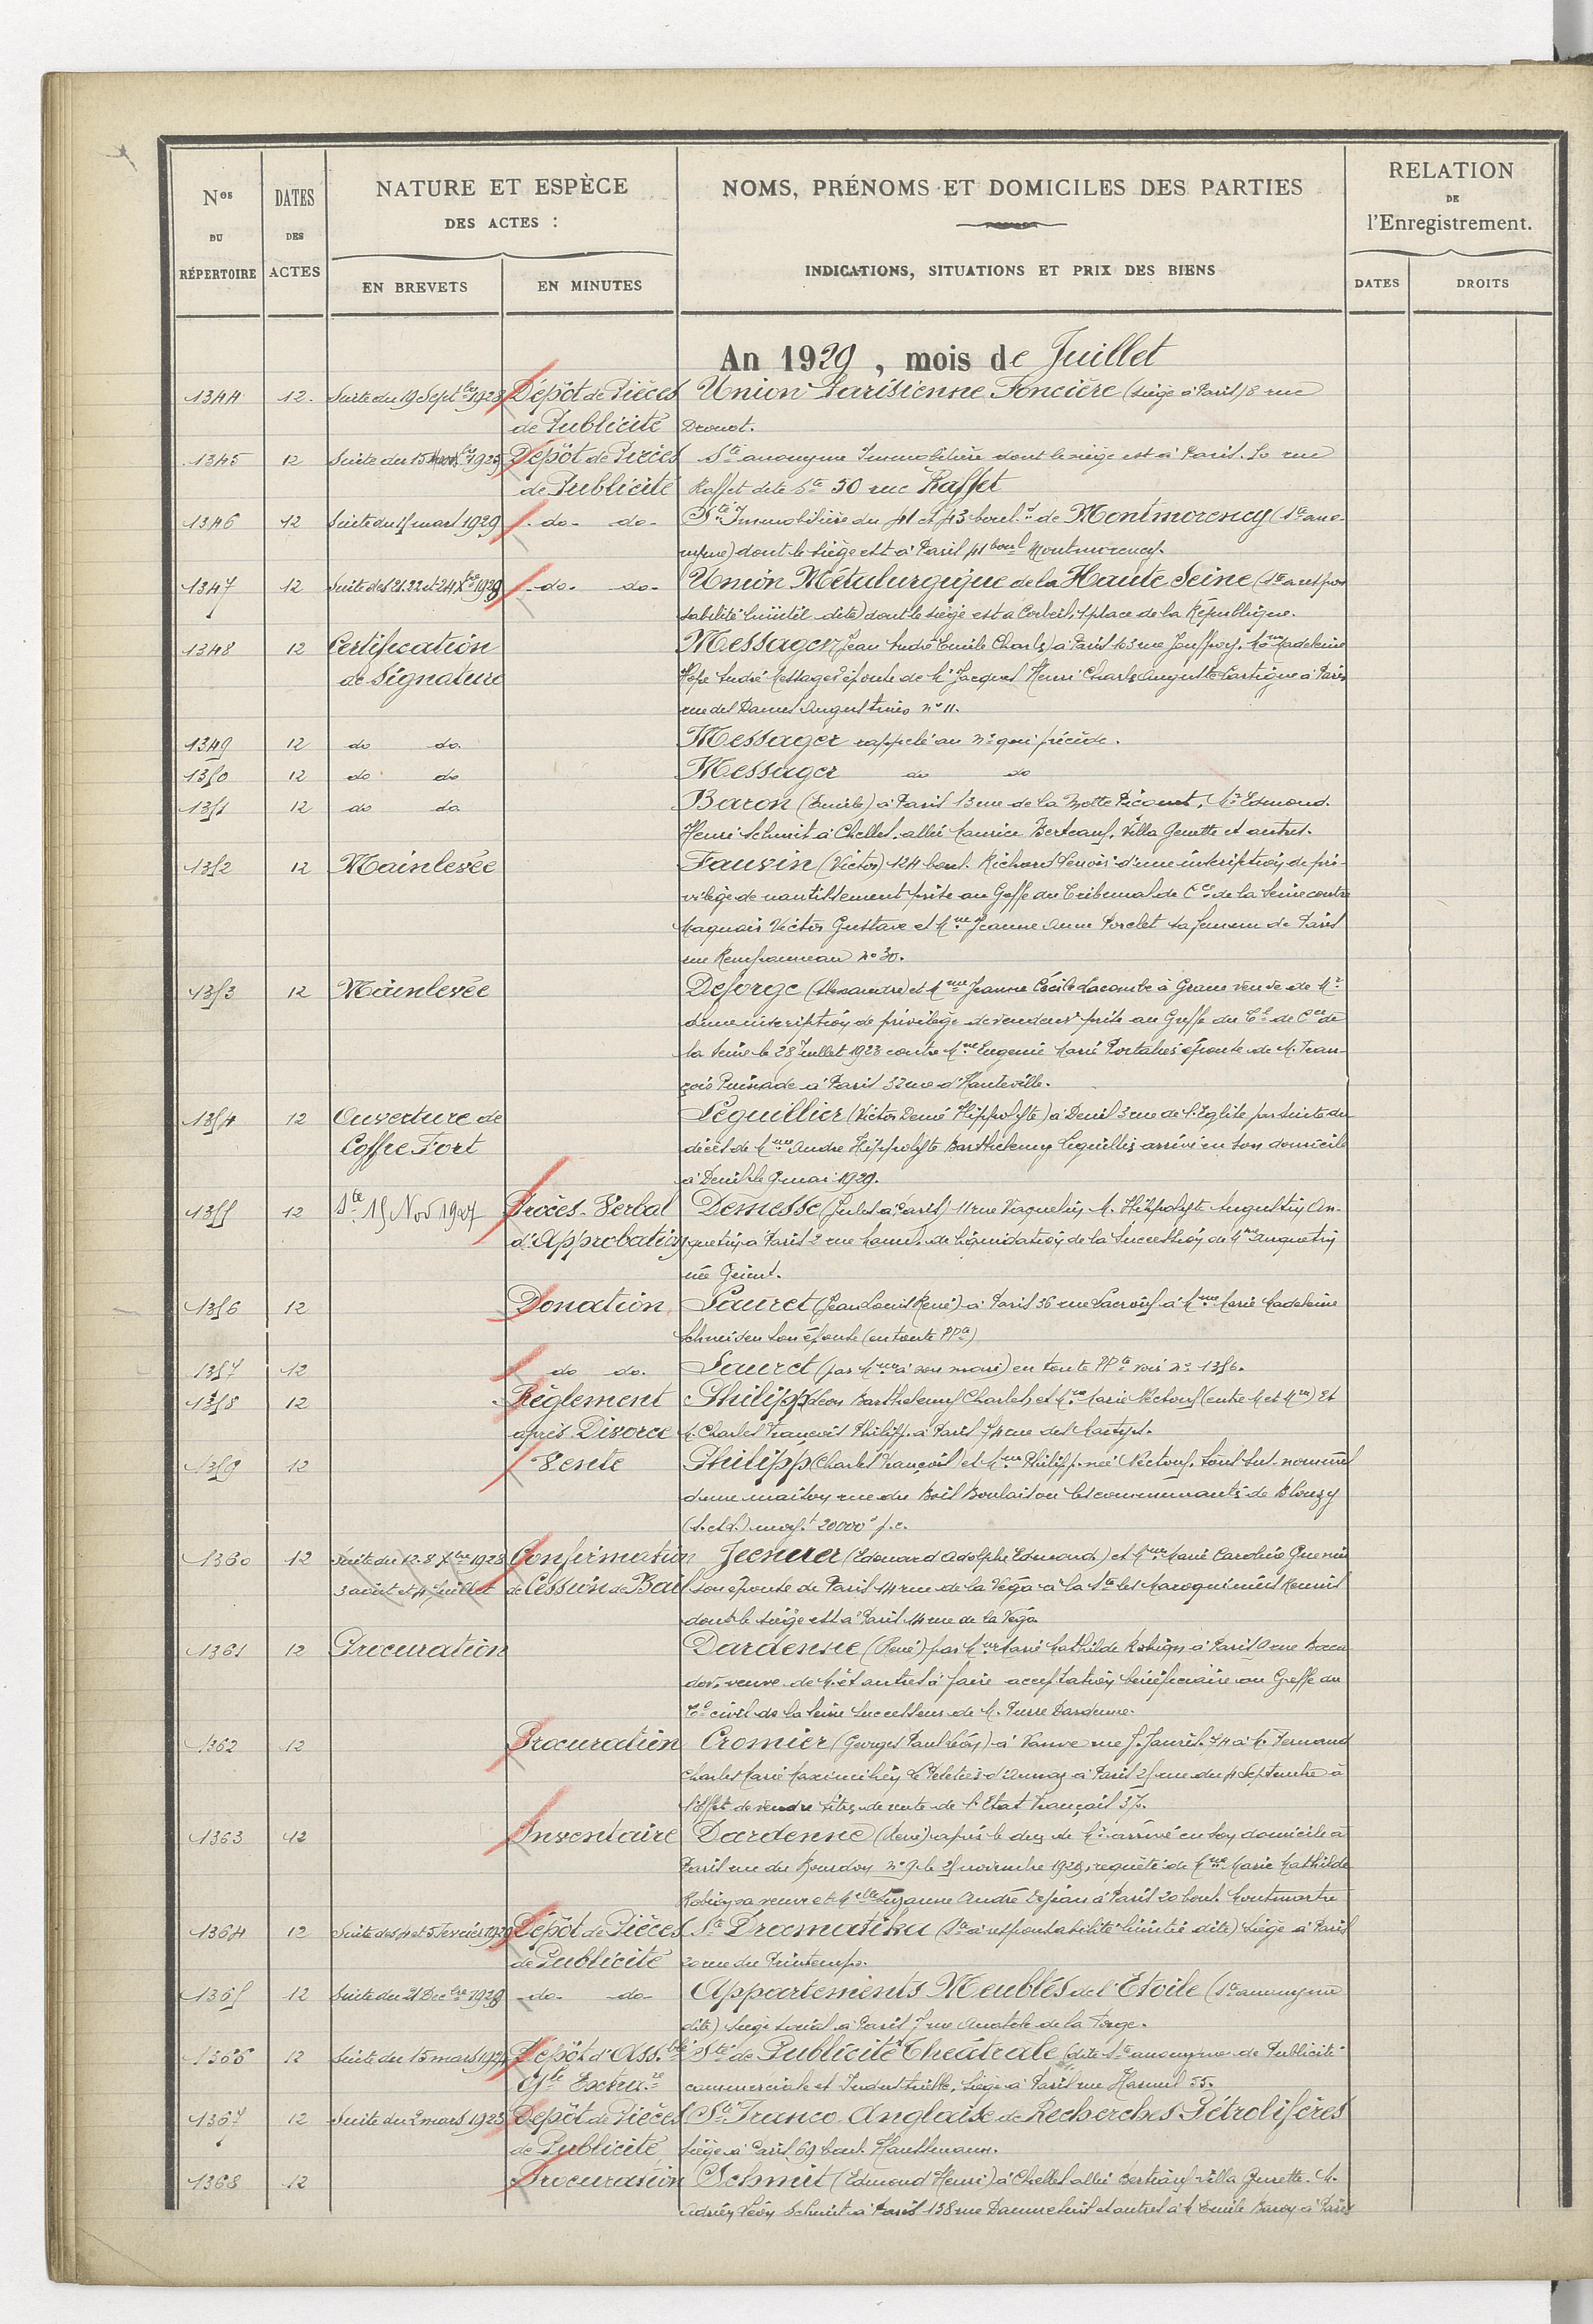 Nos DU RÉPERTOIRE
DATES DES ACTES
NATURE ET ESPÈCE DES ACTES :
EN BREVETS
EN MINUTES
NOMS, PRÉNOMS ET DOMICILES DES PARTIES
INDICATIONS, SITUATIONS ET PRIX DES BIENS
RELATION DE l'Enregistrement.
DATES
DROITS
An 1929, mois de Juillet
1344 12. Suite du 19 Septbre 1928 Dépôt de Pièces Union Parisienne Foncière (siège à Paris) 8 rue
de Publicité Drouot.
1345 12 Suite du 15 1929 Dépôt de Pièces Sté anonyme Immobilière dont le siège est à Paris. 50 rue
de Publicité Raffet dite Sté 50 rue Raffet
1346 12 Suite du 15 mars 1929 - do - do - Sté Immobilière du 41 et 43 boul.d de Montmorency (Sté ano-
nyme) dont le siège est à Paris 41 boul Montmorency.
1347 12 Suite des 21.22 et 24 Xbre 1929 - do - do - Union Métalurgique de la Haute Seine (Sté a respon
sabilité limitée dite) dont le siège est à Corbeil, place de la République.
1348 12 Certification Messager (Jean André Emile Charles) à Paris 103 rue Jouffroy. Mme Madeleine
de Signature Hope André Messager épouse de Mr Jacques Henri Charles Auguste Lartigue à Paris
rue des Dames Augustines no 11.
1349 12 do do. Messager rappelé au no qui précède.
1350 12 do do Messager do do
1351 12 do do Baron (Emile) à Paris 13 rue de la Motte Picquet, Mr Edmond
Henri Schmit à Chelles, allée Maurice Berteaux, Villa Ginette et autres.
1352 12 Mainlevée Fauvin (Victor) 124 boul. Richard Lenoir d'une inscription de pri-
vilège de nantissement prise au Greffe du Tribunal de Cce de la Seine contre
Maquair Victor Gustave et Mme Jeanne Anne Porclet sa femme de Paris
rue Ramponneau no 30.
1353 12 Mainlevée Deforge (Alexandre) et Mme Jeanne Cécile Lacombe à veuve de Mr
d'une inscription de privilège de vendeur prise au Greffe du Tal de Cce de
la Seine le 28 Juillet 1923 contre Mme Eugenie Marie Portalès épouse de M. Fran-
çois Puinade à Paris 32 rue d'Hauteville.
1354 12 Ouverture de Leguillier (Victor Hippolyte) à Deuil 3 rue de l'Eglise par suite du
Coffre Fort décès de Mme André Hippolyte Barthelemy Leguillier arrivé en son domicile
à Deuil le 9 mai 1929.
1355 12 Ste 15 Nov 1927 Procès-Verbal Demesse (Jules à Paris) 11 rue Vauquelin, M. Hippolyte Augustin An-
d'Approbation quetin à Paris 2 rue de liquidation de la Succession de Mme Anquetin
née
1356 12 Donation Sauret (Jean Louis René) à Paris 36 rue Lacroix à Mme Marie Madeleine
Schneider son épouse (en toute PPté)
1357 12 do do. Sauret (par Mme à son mari) en toute PPté voir no 1356.
1358 12 Règlement Philipp (Léon Barthelemy Charles) et Mme Marie Nectoux (entre M et Mme) Et
après Divorce M. Charles François Philipp à Paris 74 rue des Martyrs.
1359 12 Vente Philipp (Charles François) et Mme Philipp née Nectoux, tous sus-nommés
d'une maison rue du Bois Boulaison communauté de
moyt 20000 f.
1360 12 Suite du 12. 8 Xbre 1928 Confirmation Jeener (Edouard Adolphe Edmond) et Mme Marie Caroline
3 août et 4 Juillet de Cession de Bail son épouse de Paris 14 rue de la Véga à la Sté les Maroquineries Réunies
dont le siège est à Paris 14 rue de la Véga
1361 12 Procuration Dardenne (René) par Mme Marie Mathilde Robion à Paris 9 rue Bocca
dor, veuve de M. et autres à faire acceptation bénéficiaire au Greffe du
Tal civil de la Seine Succession de M. Pierre Dardenne.
1362 12 Procuration Cromier (Georges Paul Léon) à Vanve rue J. Jaurès 74 à Mr Fernand
Charles Marie Maximilien Le Peletier d'Aunay à Paris 25 rue du 4 Septembre à
l'effet de vendre titres de rente de l'Etat Français 3%.
1363 12 Inventaire Dardenne (René) après le décès de Mr arrivé en son domicile à
Paris rue du no 9 le 25 novembre 1928, requête de Mme Marie Mathilde
Robion sa veuve et Melle Suzanne André Dejean à Paris 20 boul. Montmartre
1364 12 Suite des 4 et 5 Fevrier 1929 Dépôt de Pièces Sté Dramatika (Sté à responsabilité limitée dite) Siège à Paris
de Publicité 20 rue du Printemps.
1365 12 Suite du 21 Decbre 1928 - do - do - Appartements Meublés de l'Etoile (Sté anonyme
dite) Siège social à Paris 7 rue Anatole de la Forge.
1366 12 Suite du 15 mars 1924 Dépôt d'Ass.blée Sté de Publicité Théâtrale (dite Sté anonyme de Publicité
Gle Extra.re commerciale et Industrielle, Siège à Paris rue 55.
1367 12 Suite du 2 mars 1923 Dépôt de Pièces Sté Franco-Anglaise de Recherches Pétrolifères
de Publicité Siège à Paris, 69 boul. Haussmann.
1368 12 Procuration Schmit (Edmond Henri) à Chelles allée Berteaux villa Ginette. M.
Adrien Léon Schmit à Paris 138 rue Damremont et autres à M Emile Baron à Paris